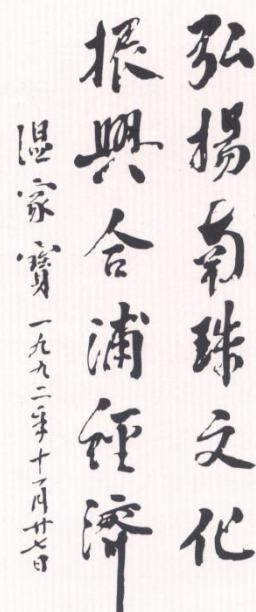 弘揚南珠文化
振興合浦經濟
温家寳一九九二年十一月廿七日